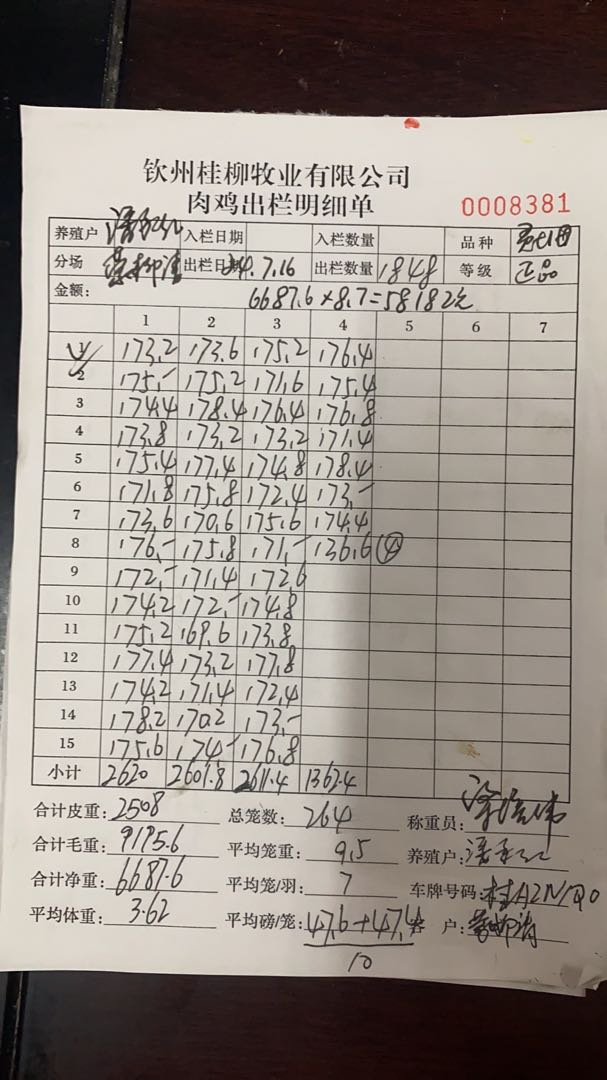 钦州桂柳牧业有限公司
肉鸡出栏明细单
0008381
养殖户 入栏日期 入栏数量 品种
分场 出栏日期 24.7.16 出栏数量 1848 等级 正品
金额: 6687.6×8.7=58182元
1 2 3 4 5 6 7
1 173.2 173.6 175.2 176.4
2 175.- 175.2 171.6 175.4
3 174.4 178.4 176.4 176.8
4 173.8 173.2 173.2 171.4
5 175.4 177.4 174.8 178.4
6 171.8 175.8 172.4 173.-
7 173.6 170.6 175.6 174.4
8 176.- 175.8 171.- 136.6 ④
9 172.- 171.4 172.6
10 174.2 172.- 174.8
11 175.2 169.6 173.8
12 177.4 173.2 177.8
13 174.2 171.4 172.4
14 178.2 170.2 173.-
15 175.6 174.- 176.8
小计 2620 2601.8 2611.4 1362.4
合计皮重: 2508 总笼数: 264 称重员:
合计毛重: 9195.6 平均笼重: 9.5 养殖户:
合计净重: 6687.6 平均笼/羽: 7 车牌号码:
平均体重: 3.62 平均磅/笼: 47.6+47.4 客户:
10